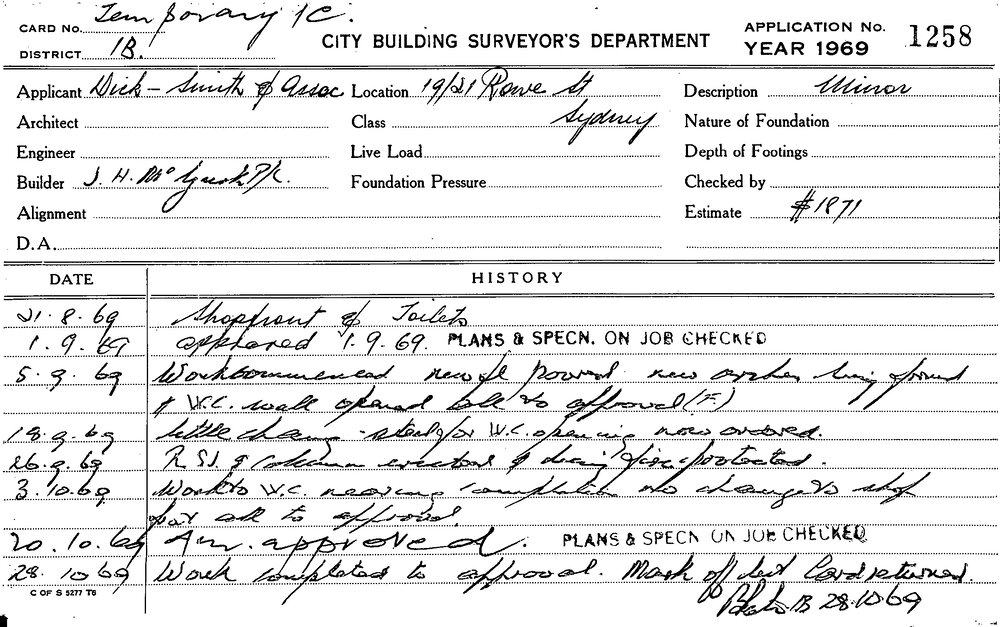 CARD No. Temporary 1C.
DISTRICT 1B.
CITY BUILDING SURVEYOR'S DEPARTMENT
APPLICATION No.
YEAR 1969
1258
Applicant Dick-Smith & Assoc Location 19/21 Rowe St Description Minor
Architect Class Sydney Nature of Foundation
Engineer Live Load Depth of Footings
Builder J. H. Mc P/L. Foundation Pressure Checked by
Alignment Estimate $1871
D.A.
DATE HISTORY
21.8.69 Shopfront & Toilets
1.9.69 approved 1.9.69. PLANS & SPECN. ON JOB CHECKED
5.9.69 Work commenced new fl poured new being formed
& W.C. wall opened all to approval (F.)
18.9.69 little change - steel for W.C. opening now ordered.
26.9.69 R.S.J. & column erected & being fire protected.
3.10.69 Work to W.C. nearing completion no change to shop
all to approval.
20.10.69 Am. approved. PLANS & SPECN ON JOB CHECKED
28.10.69 Work completed to approval. Mark off Card returned.
28.10.69
C OF S 5277 T6